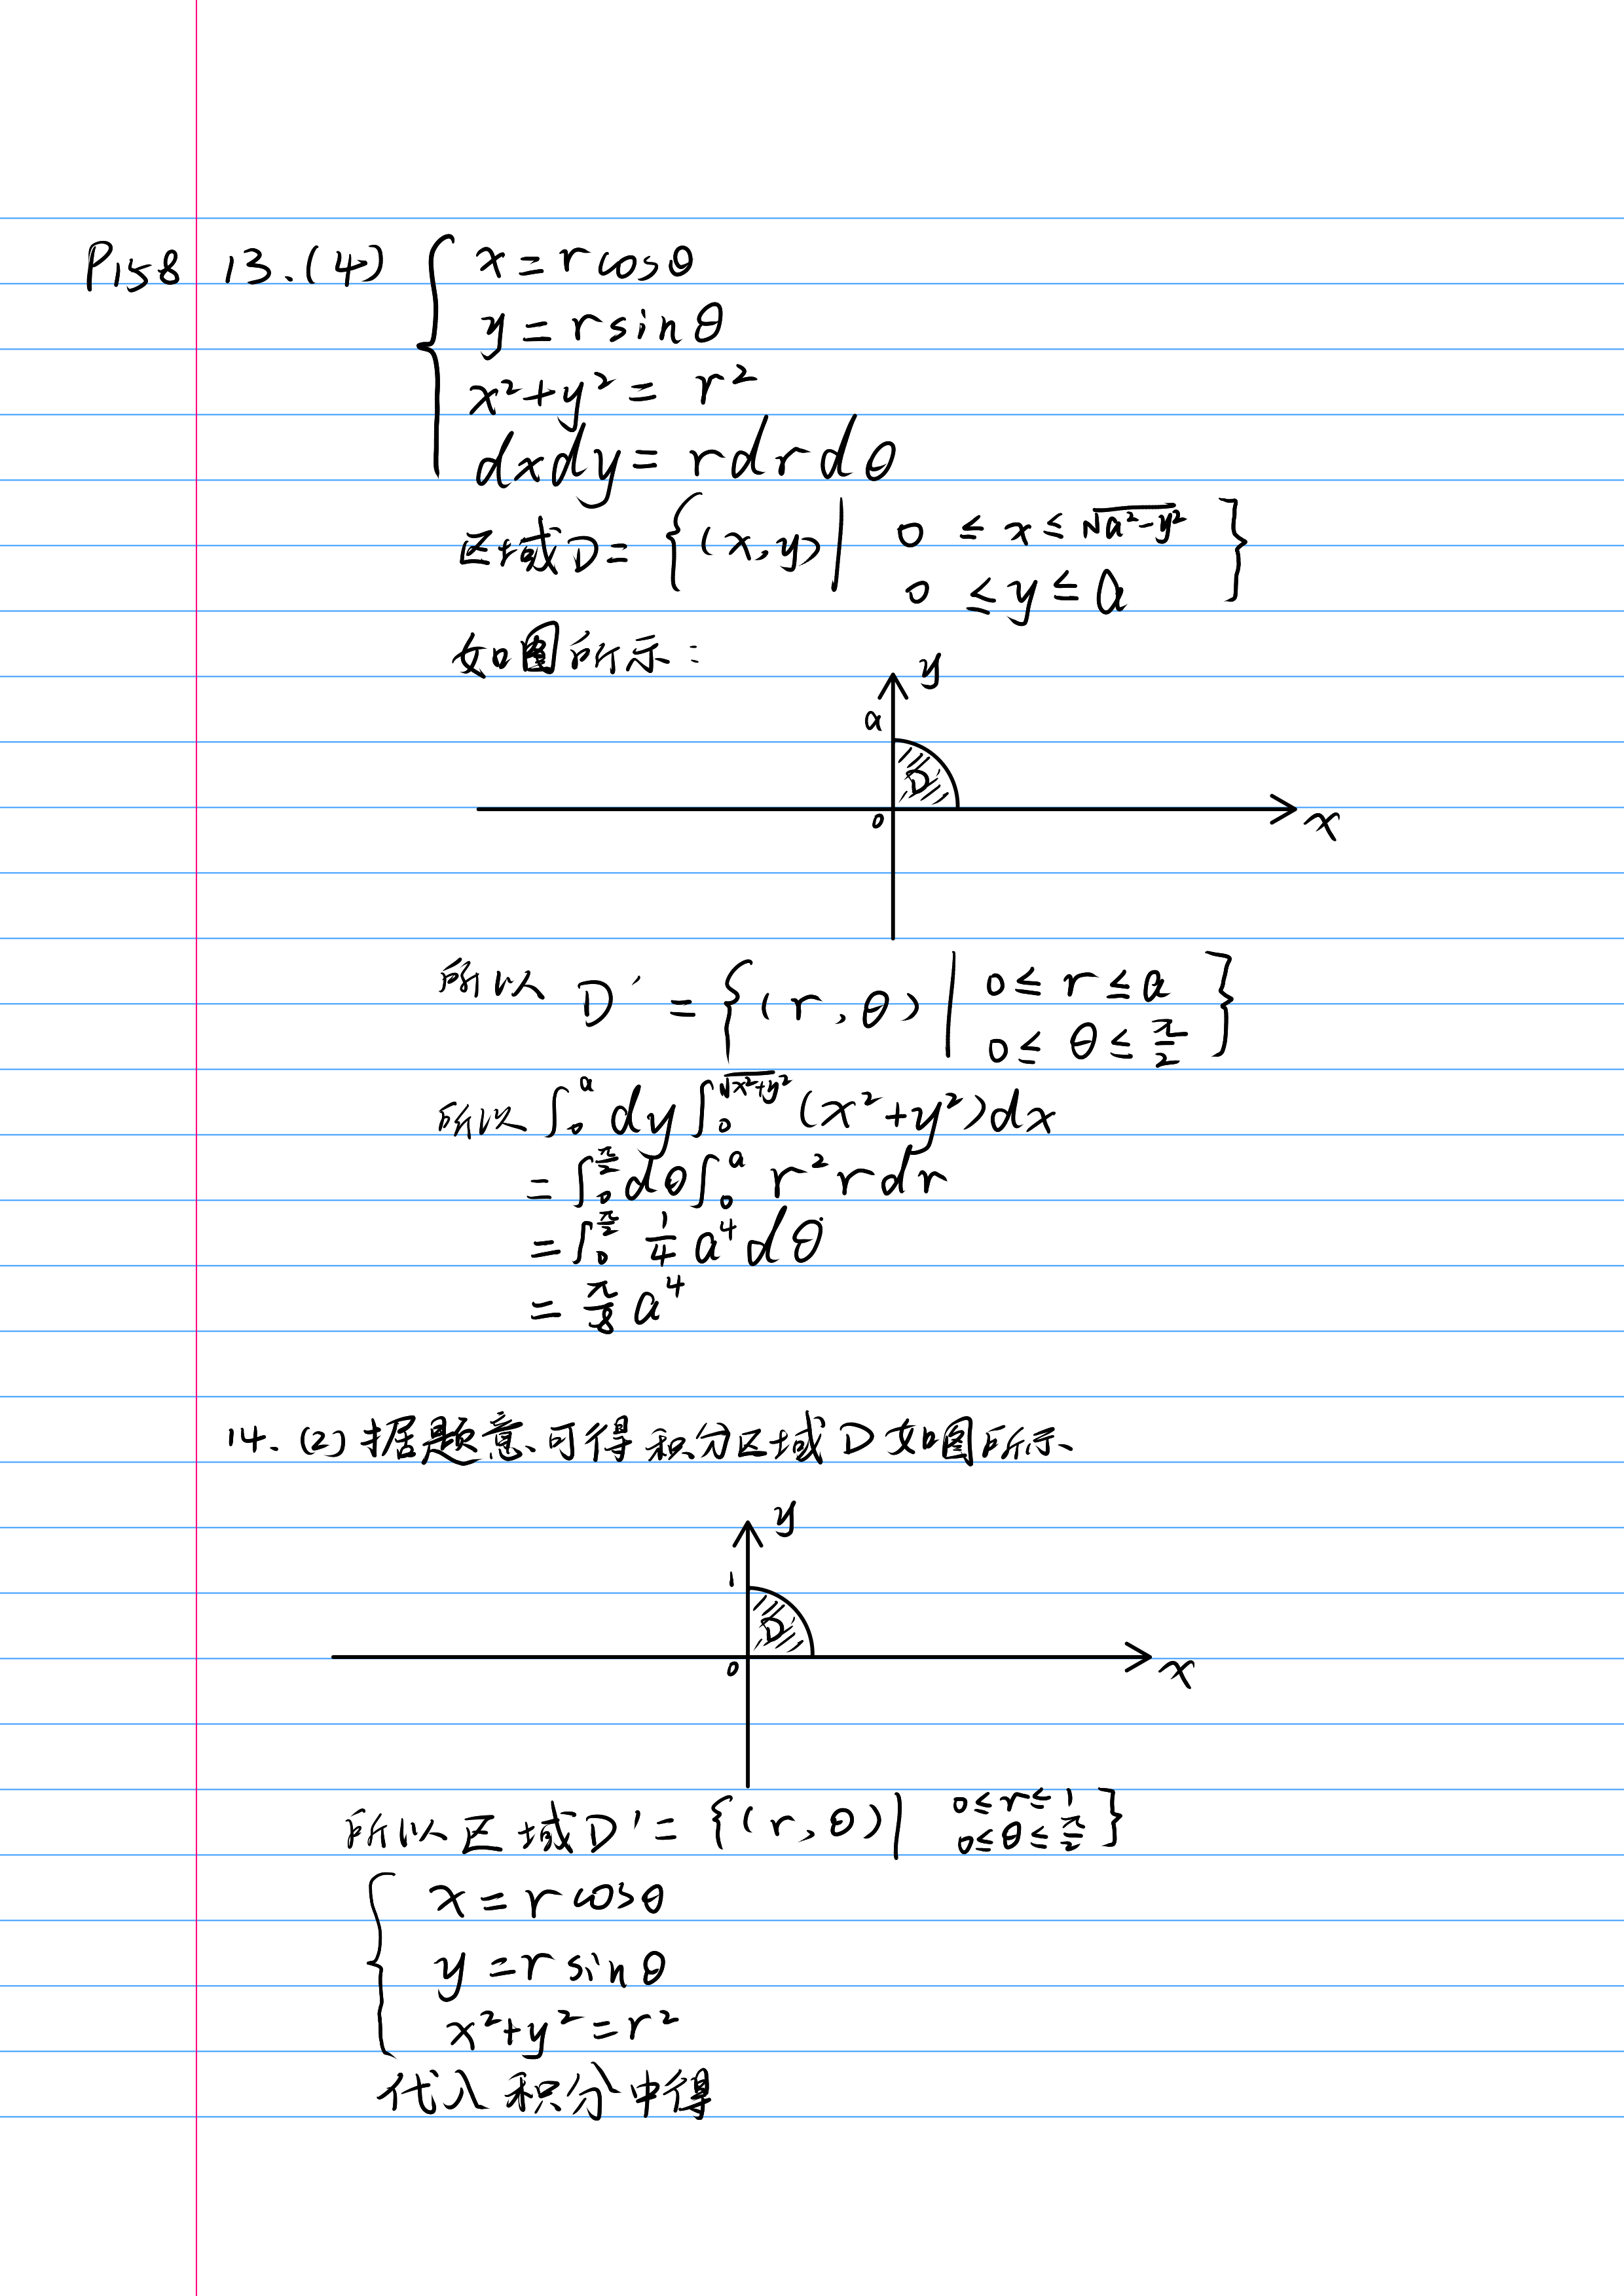 P158 13.(4) { x = r cosθ
y = r sinθ
x²+y² = r²
dxdy = rdrdθ
区域D = {(x,y)| 0 ≤ x ≤ √a²-y² }
0 ≤ y ≤ a
如图所示:
y
a
D
0
x
所以 D' = {(r,θ)| 0 ≤ r ≤ a }
0 ≤ θ ≤ π/2
所以 ∫₀ᵃ dy ∫₀^√x²+y² (x²+y²)dx
= ∫₀^π/2 dθ ∫₀ᵃ r² r dr
= ∫₀^π/2 1/4 a⁴ dθ
= π/8 a⁴
14.(2) 据题意、可得积分区域D如图所示、
y
1
D
0
x
所以区域D' = {(r,θ)| 0≤r≤1 }
0≤θ≤π/2
{ x = r cosθ
y = r sinθ
x²+y² = r²
代入积分中得